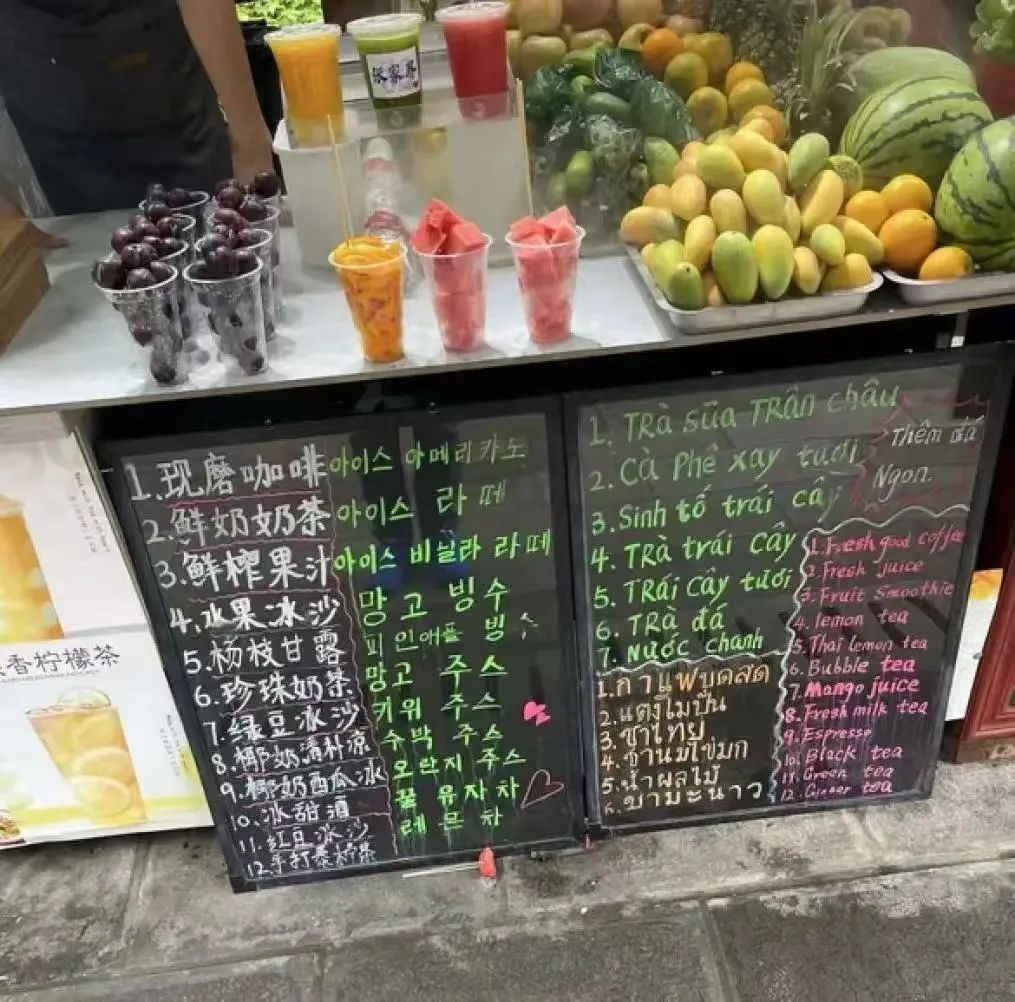 张家界
1.现磨咖啡
2.鲜奶奶茶
3.鲜榨果汁
4.水果冰沙
5.杨枝甘露
6.珍珠奶茶
7.绿豆冰沙
8.椰奶清补凉
9.椰奶西瓜冰
10.冰甜酒
11.红豆冰沙
12.手打泰柠茶
아이스 아메리카노
아이스 라떼
아이스 비닐라 라떼
망고 빙수
피인애플 빙수
망고 주스
키위 주스
수박 주스
오란지 주스
꿀 유자차
레몬차
1. TRà sữa TRân châu
2. Cà Phê xay tươi
3. Sinh tố trái cây
4. TRà trái cây
5. TRái cây tươi
6. TRà đá
7. Nước chanh
Thêm đá
Ngon.
1. กาแฟบูดสด
2. แตงโมปั่น
3. ชาไทย
4. ชานมไข่มุก
5. น้ำผลไม้
6. ชามะนาว
1. Fresh good coffee
2. Fresh juice
3. Fruit Smoothie
4. lemon tea
5. Thai lemon tea
6. Bubble tea
7. Mango juice
8. Fresh milk tea
9. Espresso
10. Black tea
11. Green tea
12. Ginger tea
香柠檬茶